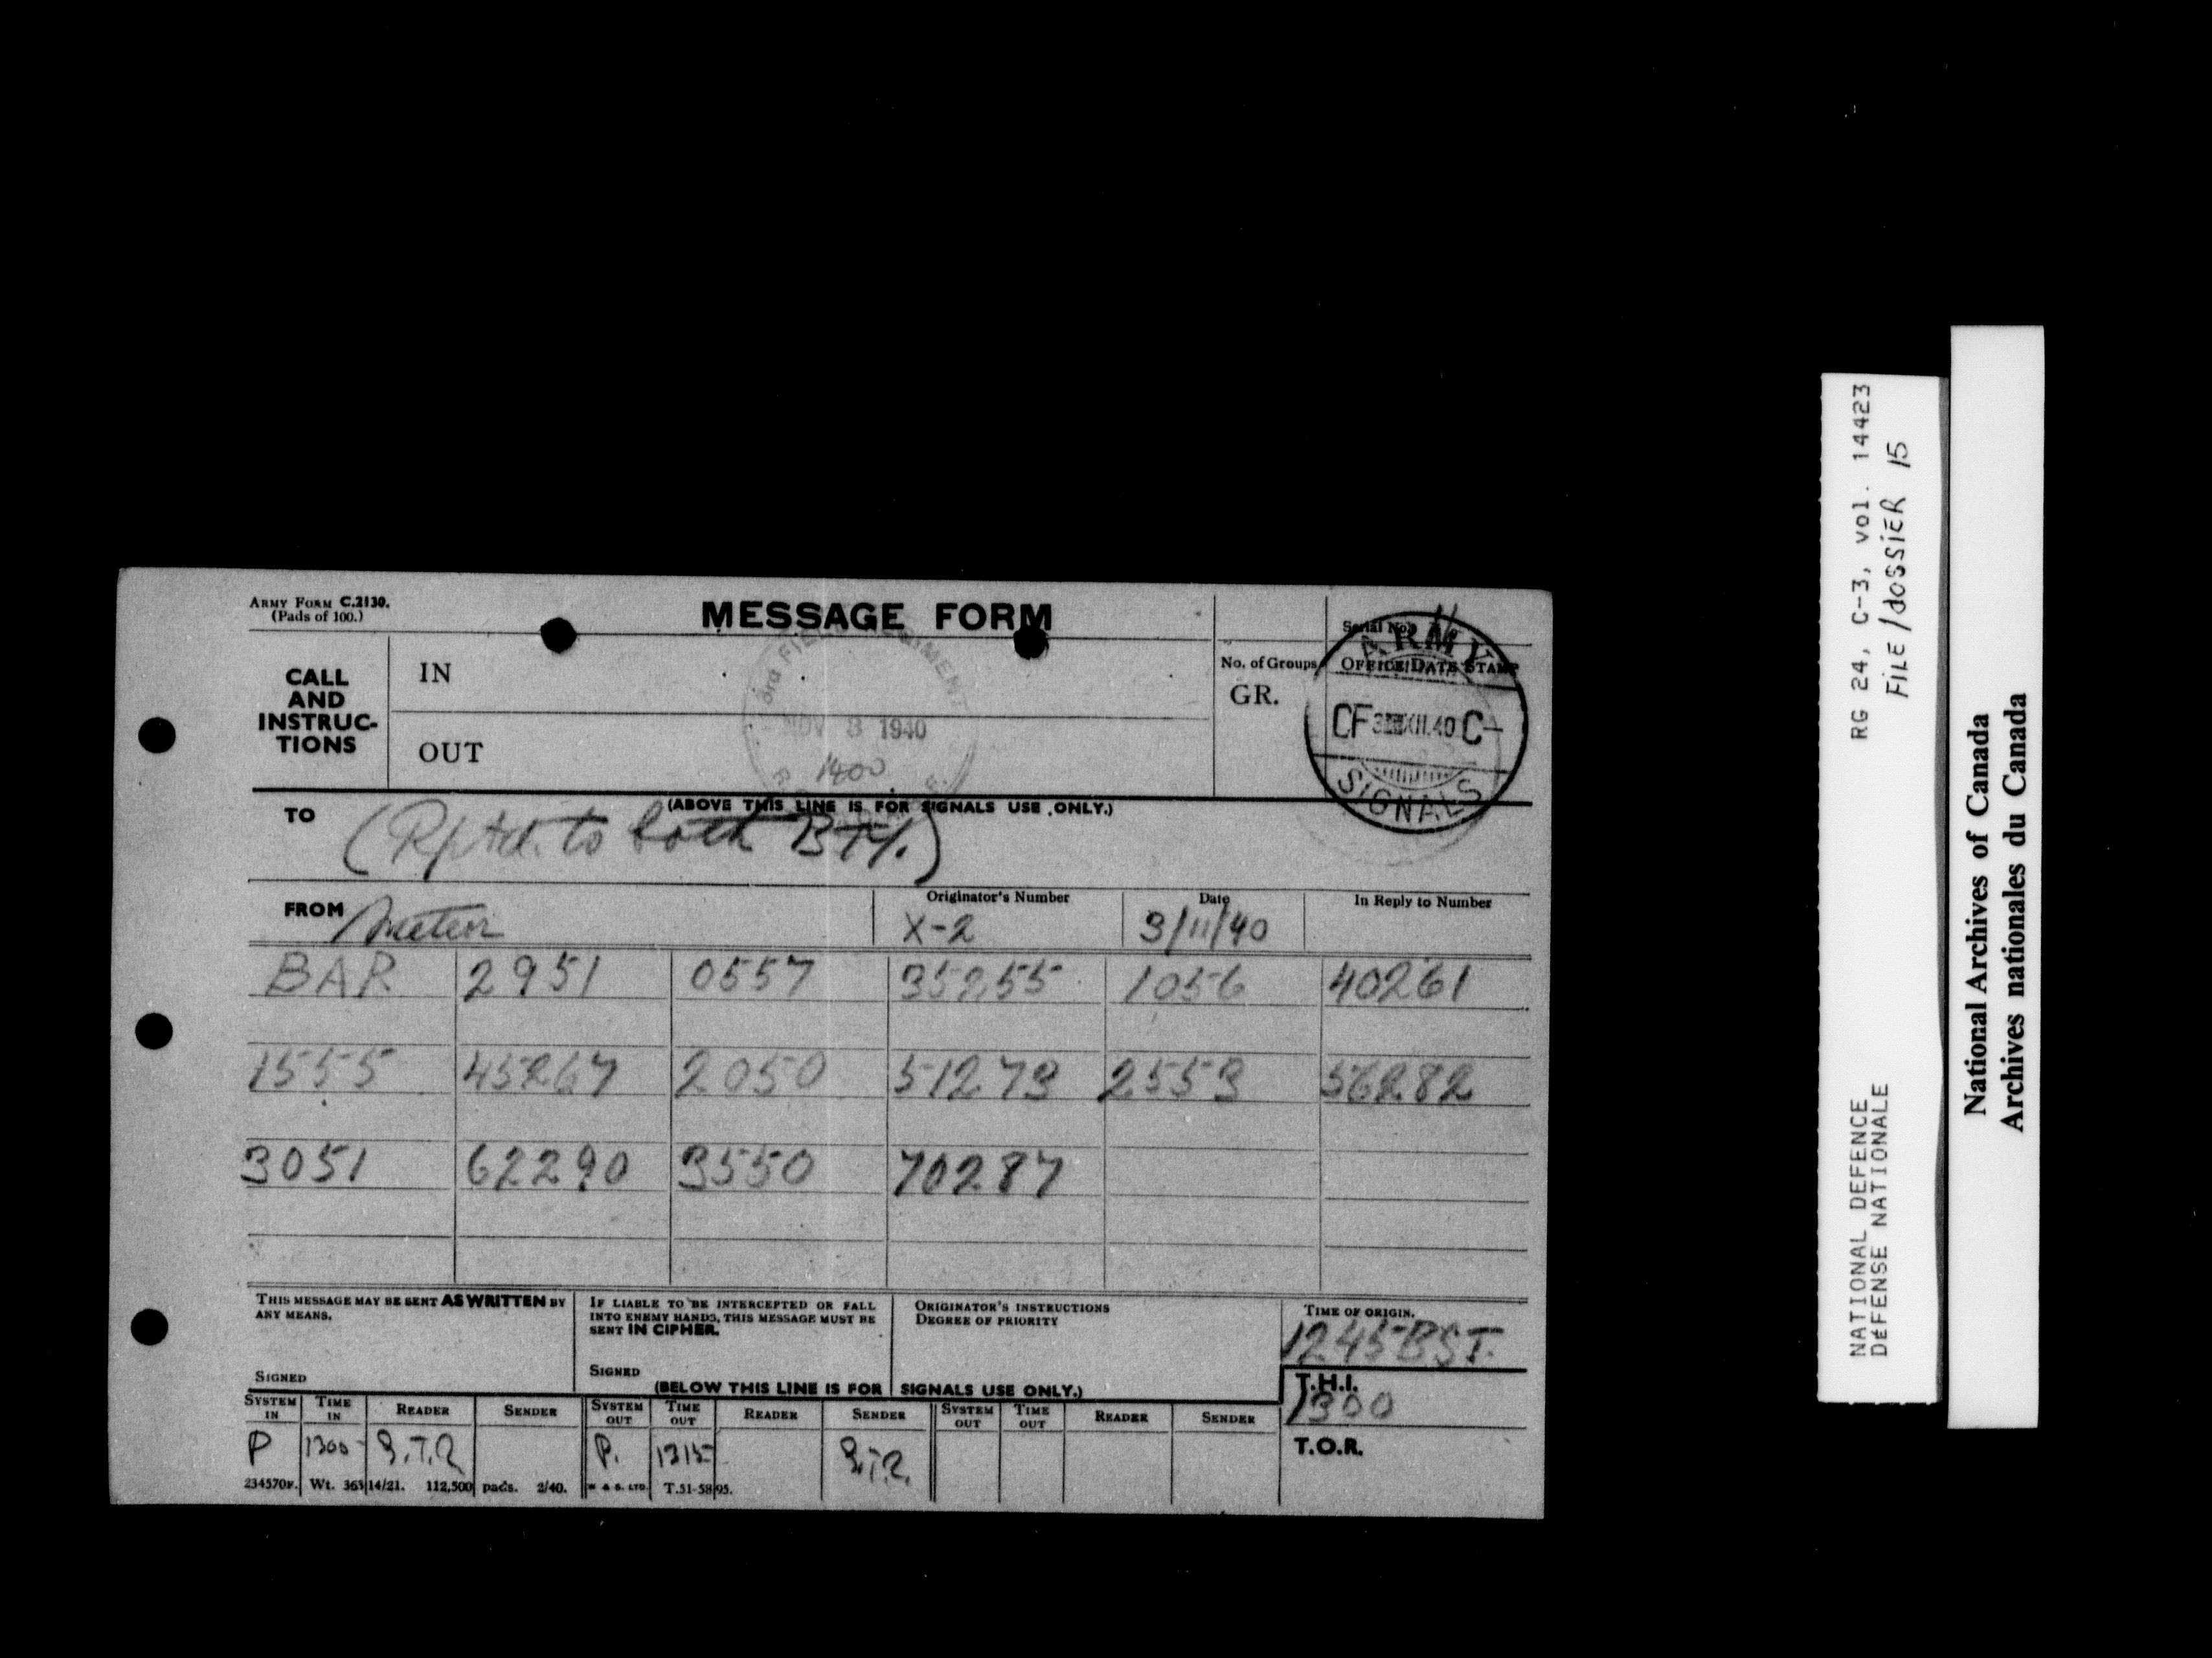 ARMY FORM C.2130.
(Pads of 100.)
MESSAGE FORM
Serial No.
CALL AND INSTRUC-TIONS
IN
OUT
No. of Groups
GR.
OFFICE DATE STAMP
3rd FIELD REGIMENT
NOV 3 1940
1400
ARMY
CF 3 XII.40 C
SIGNALS
(ABOVE THIS LINE IS FOR SIGNALS USE ONLY.)
TO (Rptd. to both BTY.)
FROM Meteor
Originator's Number X-2
Date 3/11/40
In Reply to Number
BAR 2951 0557 35255 1056 40261
1555 45267 2050 51273 2553 56282
3051 62290 3550 70287
THIS MESSAGE MAY BE SENT AS WRITTEN BY ANY MEANS.
SIGNED
IF LIABLE TO BE INTERCEPTED OR FALL INTO ENEMY HANDS, THIS MESSAGE MUST BE SENT IN CIPHER.
SIGNED
ORIGINATOR'S INSTRUCTIONS
DEGREE OF PRIORITY
TIME OF ORIGIN.
1245 BST.
(BELOW THIS LINE IS FOR SIGNALS USE ONLY.)
T.H.I.
1300
T.O.R.
SYSTEM IN TIME IN READER SENDER SYSTEM OUT TIME OUT READER SENDER SYSTEM OUT TIME OUT READER SENDER
P 1300 S.T.R. P. 1315 S.T.R.
234570F. Wt. 363 14/21. 112,500 pads. 2/40. W & S. LTD. T.51-5895.
RG 24, C-3, vol. 14423
FILE/dossiER 15
NATIONAL DEFENCE
DÉFENSE NATIONALE
National Archives of Canada
Archives nationales du Canada